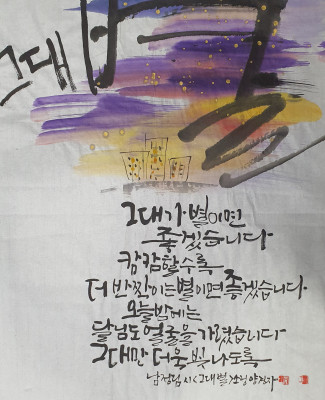 그대 별
그대가 별이면
좋겠습니다
캄캄할수록
더 반짝이는 별이면 좋겠습니다
오늘밤에는
달님도 얼굴을 가렸습니다
그대만 더욱 빛나도록
남정림 시 <그대 별>